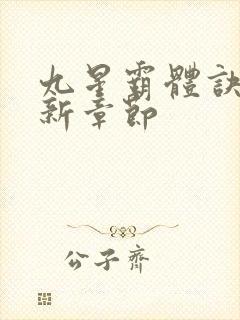 九星霸體訣
新章節
公子齊